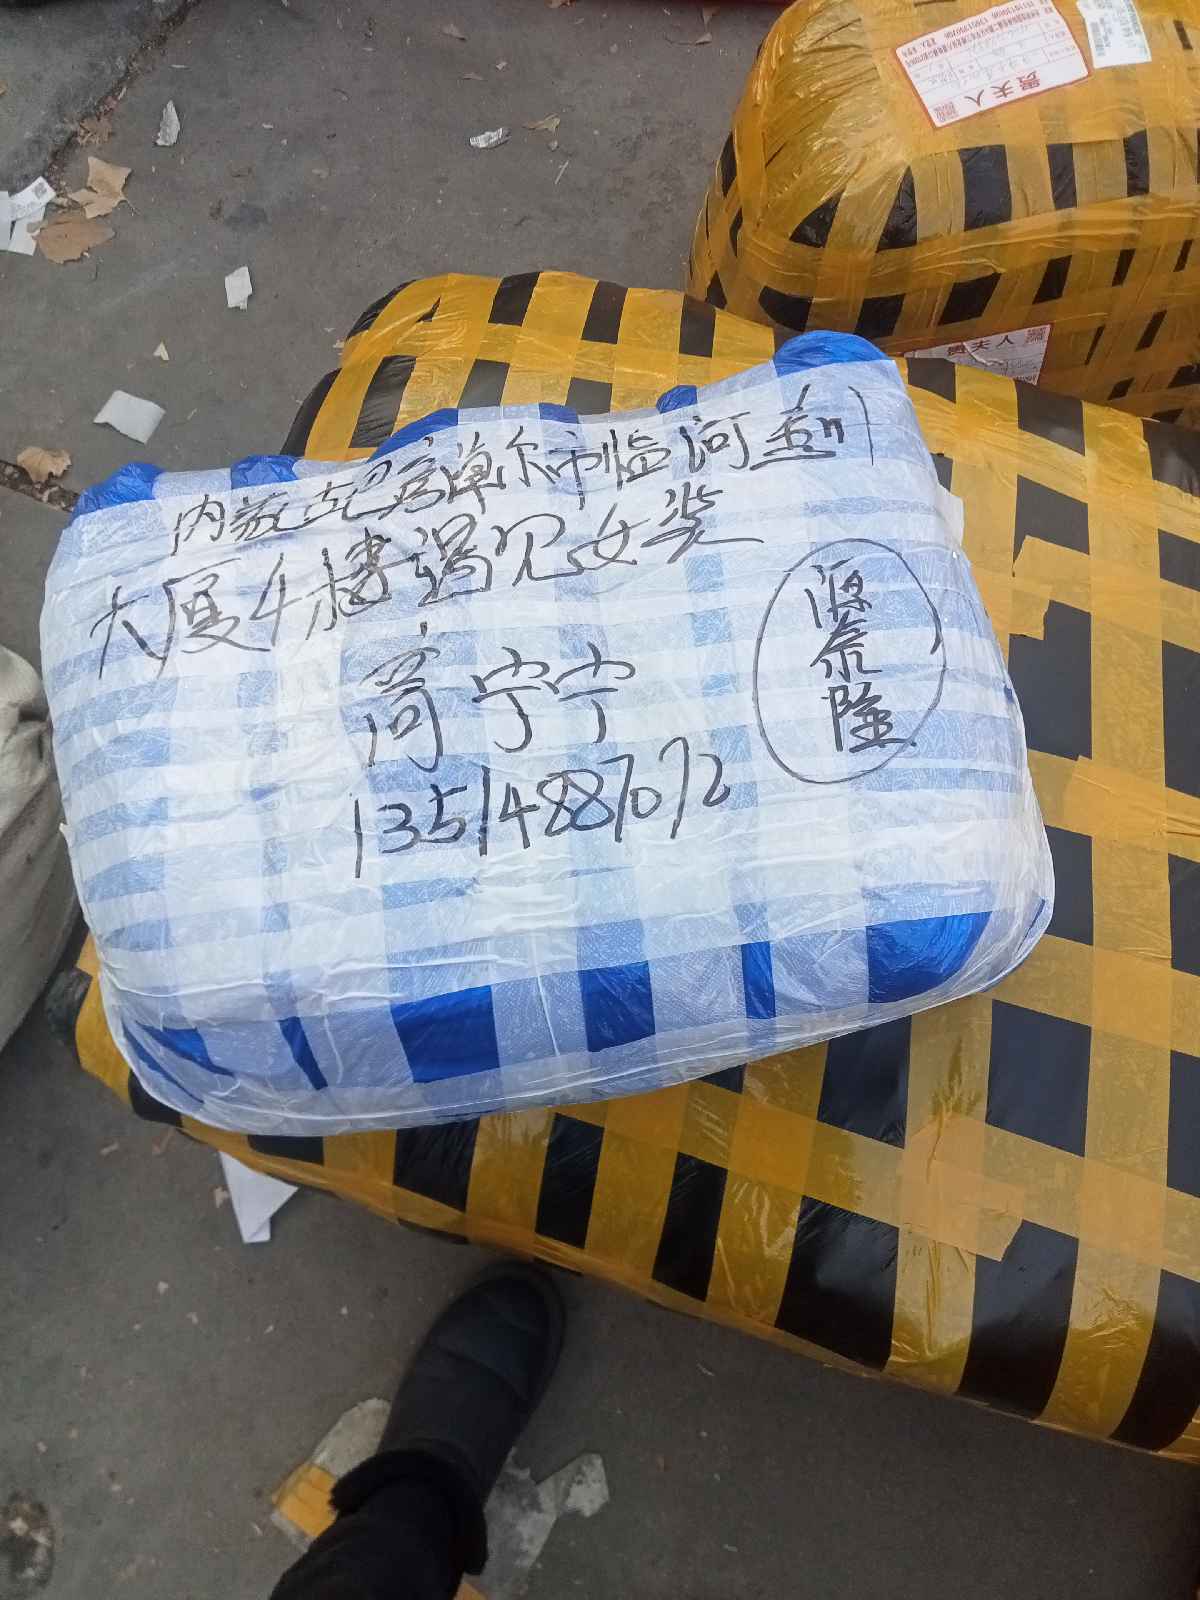 内蒙古巴彦卓尔市临河金川
大厦4楼遇见女装
高宁宁
13514887072
源泰隆
贵夫人
贵夫人